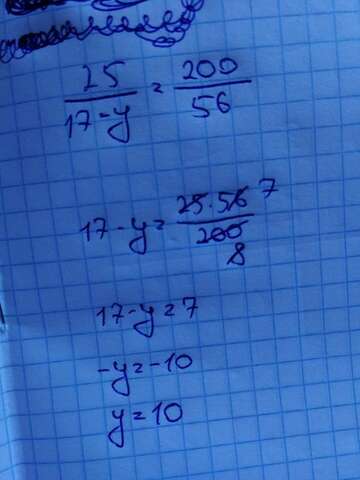 25/(17-y) = 200/56
17-y = (25·56)/200 7
8
17-y=7
-y=-10
y=10